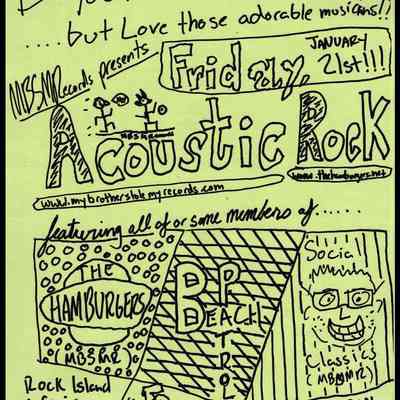 ....but Love those adorable musicans!!
MBSMRecords presents
Friday, JANUARY 21st!!!
Acoustic Rock
www.thehamburgers.net
www.mybrotherstolemyrecords.com
featuring all of or some members of......
THE HAMBURGERS
MBSMR
B PATROL
BEACH
Socia
Classics
(MBSMR)
Rock Island